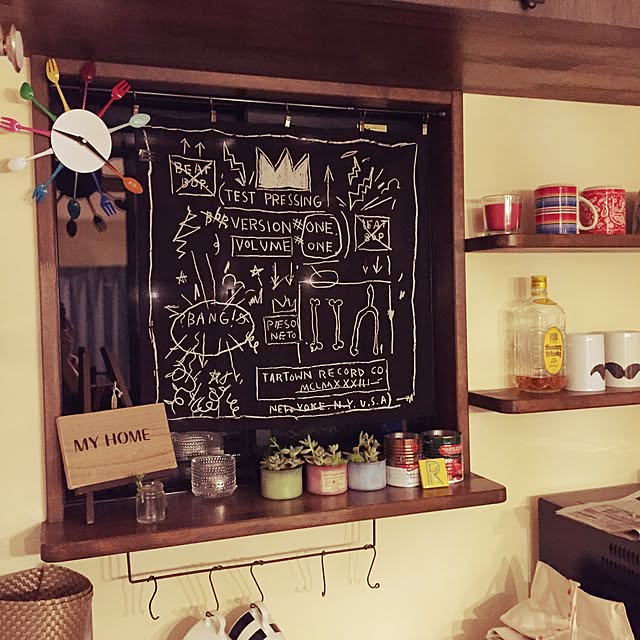 BEAT
BOP
TEST PRESSING
BOP VERSION ONE
VOLUME ONE
BEAT
BOP
BANG!
PIESO
NETO
TARTOWN RECORD CO
MCLMXXXIII
NEW YOKE. N.Y. U.S.A
MY HOME
R